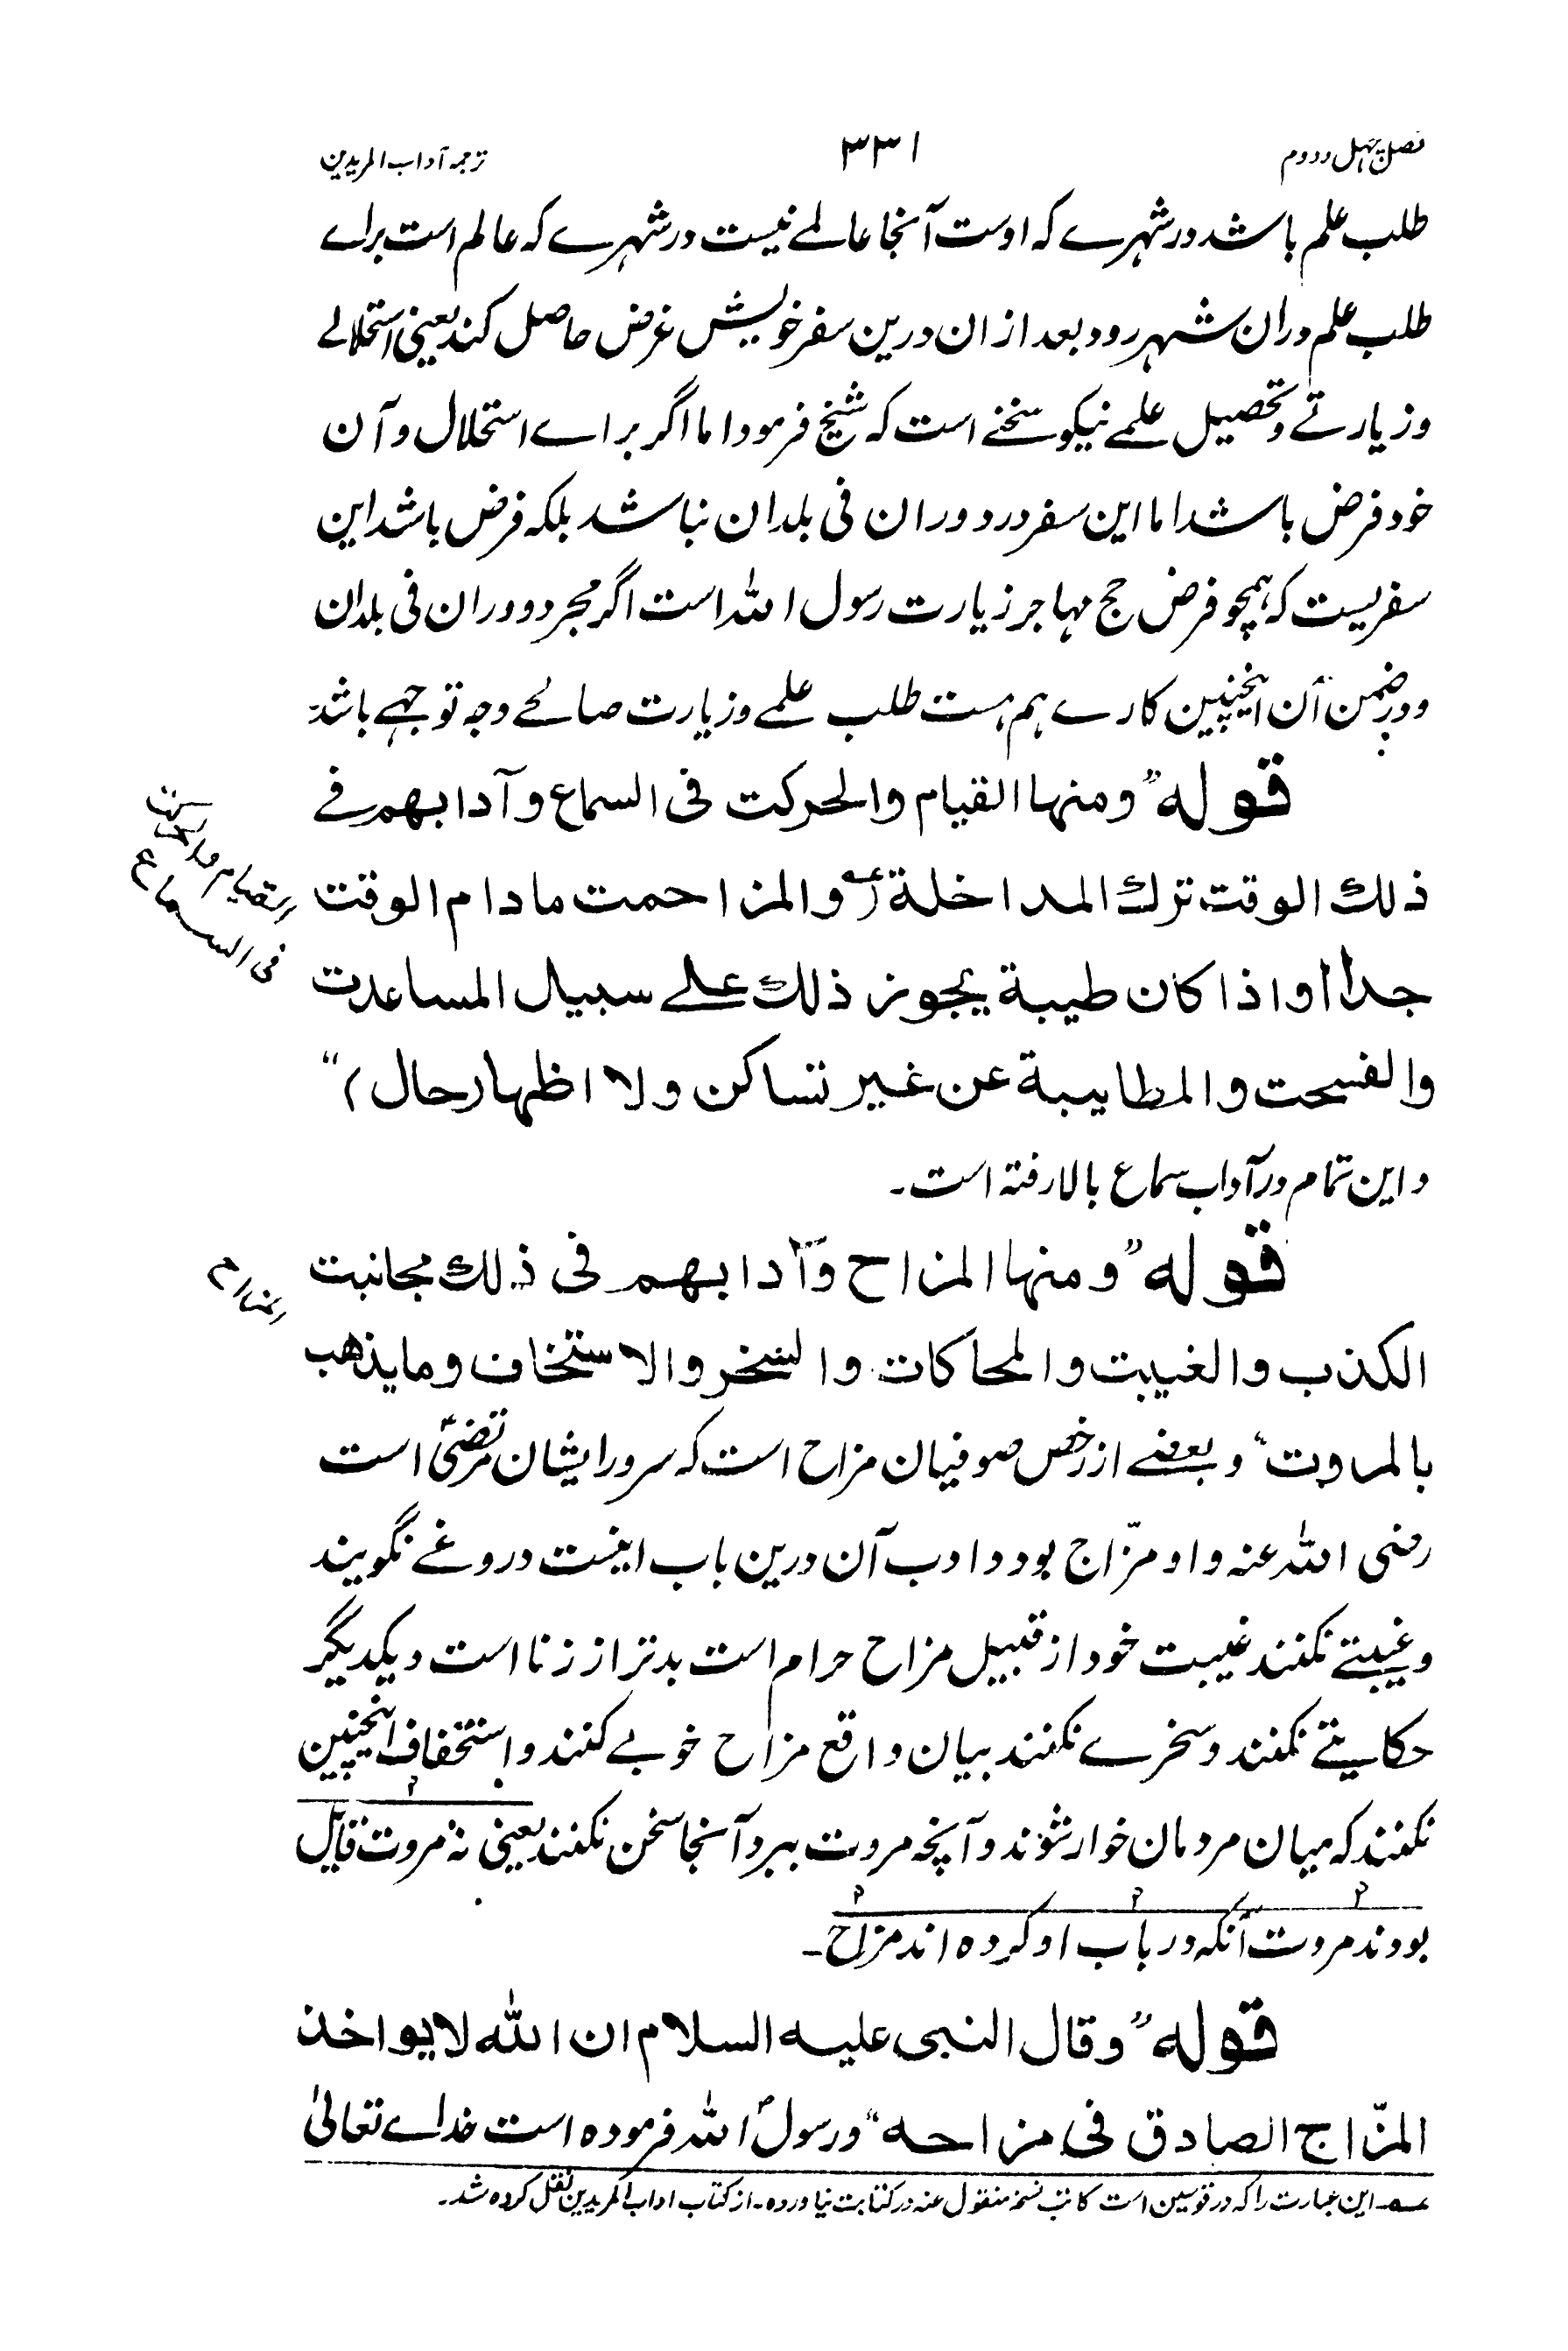 فصل چہل ودوم
۳۳۱
ترجمہ آداب المریدین
طلب علم باشد در شہرے کہ اوست آنجا عالمے نیست در شہرے کہ عالم است براے
طلب علم دران شہر رود بعد ازان درین سفر خویش غرض حاصل کند یعنی استحلالے
وزیارتے وتحصیل علمے نیکو سخنے است کہ شیخ فرمود اما اگر براے استحلال وآن
خود فرض باشد اما این سفر در دوران فی بلدان نباشد بلکہ فرض باشد این
سفریست کہ ہمچو فرض حج مہاجر زیارت رسول اللہ است اگر مجرد دوران فی بلدان
ودر ضمن آن اینچنین کارے ہم ہست طلب علمے وزیارت صالحے وجہ توجہے باشد
قولہ ”ومنہا القیام والحرکت فی السماع وآدابہم فے
ذلك الوقت ترك المداخلة (عہ والمزاحمت مادام الوقت
جدا واذا کان طیبة یجوز ذلك علے سبیل المساعدت
والفسحت والمطایبة عن غیر تساکن ولا اظہار حال)“
القیام والحرکت
فی السماع
واین تمام در آداب سماع بالا رفتہ است۔
قولہ ”ومنہا المزاح وآدابہم فی ذلك مجانبت
المزاح
الکذب والغیبت والمحاکات والسخر والاستخفاف ومایذهب
بالمروت“ وبعضے از رخص صوفیان مزاح است کہ سرور ایشان مرتضیٰ است
رضی اللہ عنہ واو مزّاح بود وادب آن درین باب اینست دروغے نگویند
وغیبتے نکنند غیبت خود از قبیل مزاح حرام است بدتر از زنا است ویکدیگر
حکایتے نکنند وسخرے نکنند بیان واقع مزاح خوبے کنند واستخفاف اینچنین
نکنند کہ میان مردمان خوار شوند وآنچہ مروت ببرد آنجا سخن نکنند یعنی نہ مروت قایل
بود نہ مروت آنکہ در باب او کردہ اند مزاح۔
قولہ ”وقال النبی علیہ السلام ان اللہ لا یواخذ
المزّاح الصادق فی مزاحہ“ ورسول اللہ فرمودہ است خداے تعالیٰ
عہ۔ این عبارت را کہ در قوسین است کاتب نسخہ منقول عنہ در کتابت نیاوردہ۔ از کتاب اداب المریدین نقل کردہ شد۔